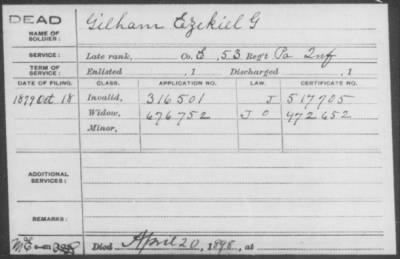 DEAD Gilham Ezekiel G
NAME OF SOLDIER:
SERVICE: Late rank, Co. E, 53 Reg't Pa Inf
TERM OF SERVICE: Enlisted , 1 Discharged , 1
DATE OF FILING. CLASS. APPLICATION NO. LAW. CERTIFICATE NO.
1879 Oct. 18 Invalid, 316501 J 517705
Widow, 676752 J O 472652
Minor,
ADDITIONAL SERVICES:
REMARKS:
Died April 20, 1898, at